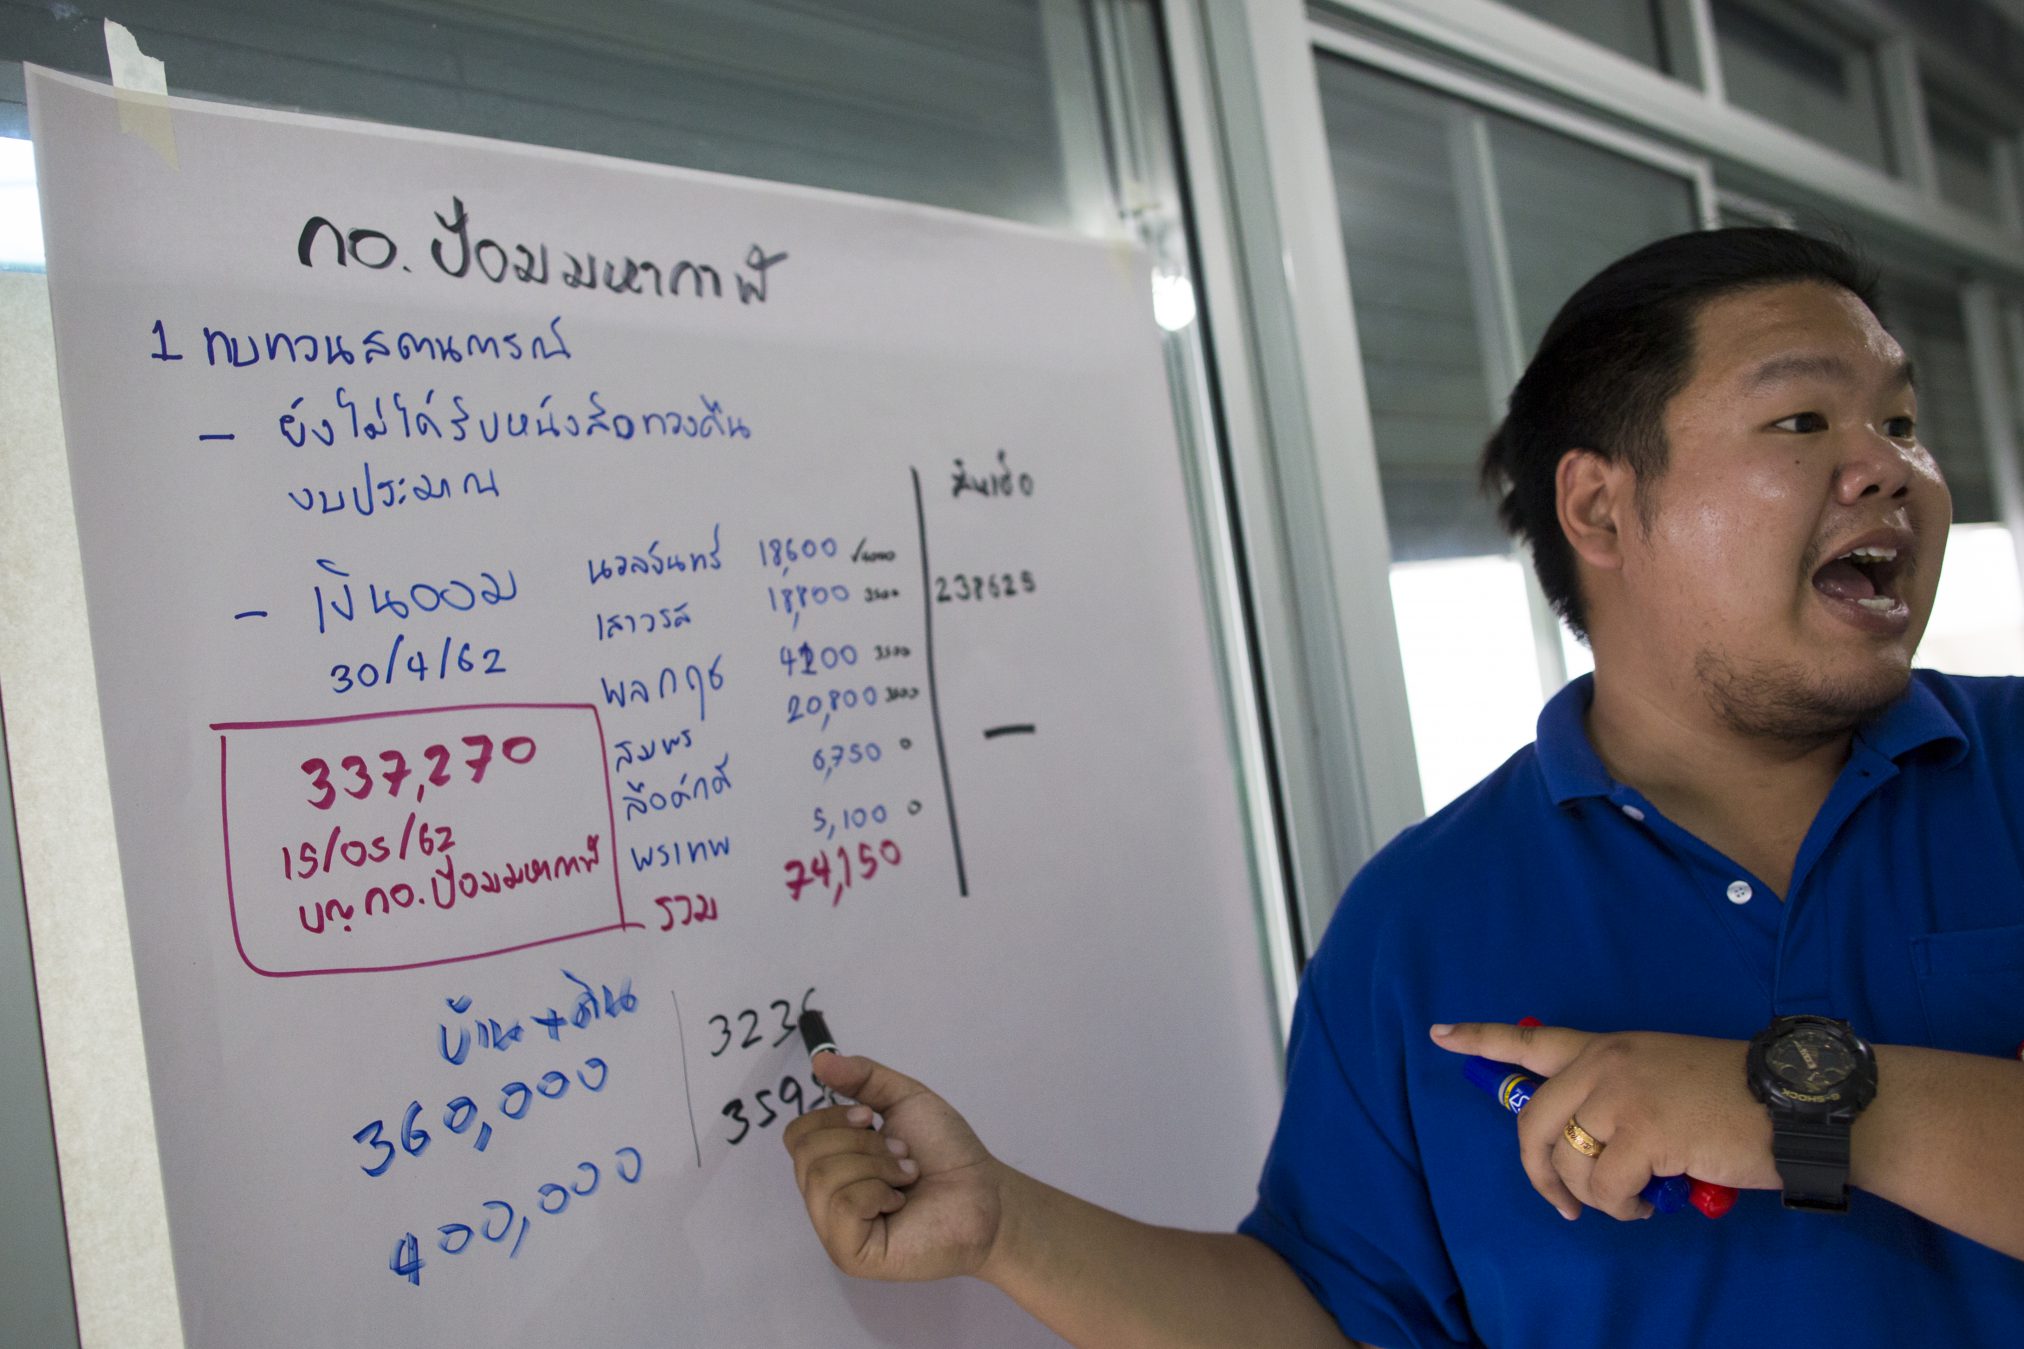 กอ.ป้อมมหากาฬ
1 ทบทวนสถานการณ์
- ยังไม่ได้รับหนังสือทวงคืน
งบประมาณ
- เงินออม
30/4/62
337,270
15/05/62
บช.กอ.ป้อมมหากาฬ
นวลจันทร์ 18,600
เสาวรส 18,800 3500
พลกฤช 4200 3500
สมพร 20,800
6,750 0
พรเทพ 5,100 0
รวม 74,150
สินเชื่อ
238625
-
บ้าน+ดิน
360,000
400,000
G-SHOCK